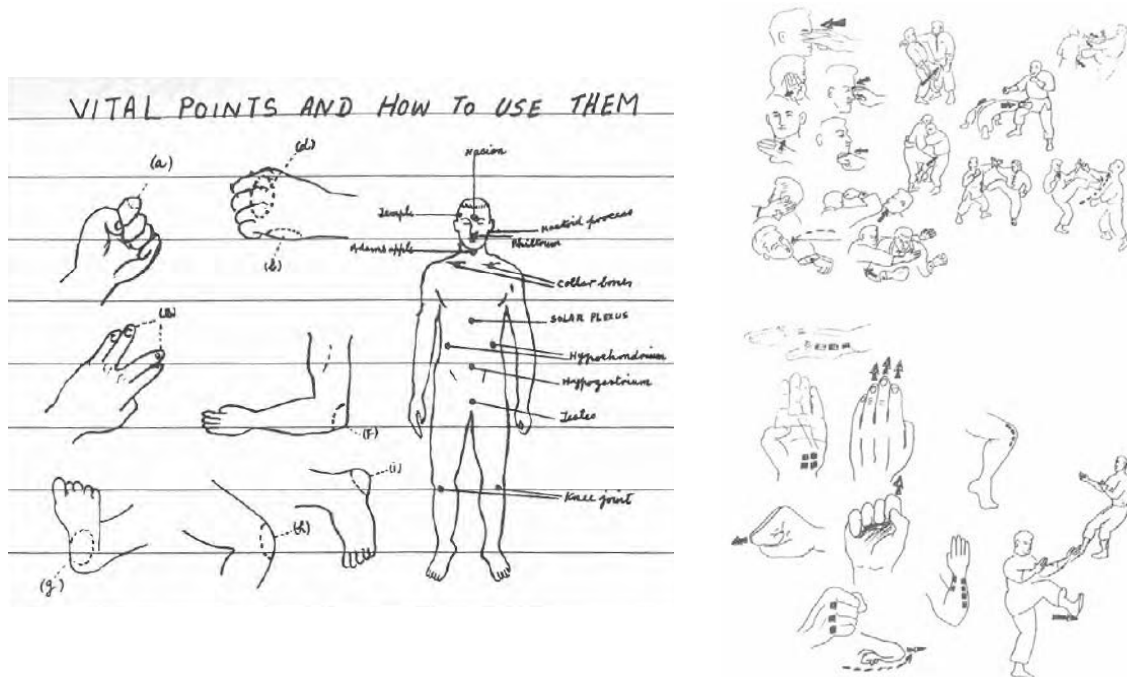 VITAL POINTS AND HOW TO USE THEM
(a)
(d)
Nasion
Temple
Mastoid process
Philtrum
Adams apple
(b)
Collar bones
SOLAR PLEXUS
Hypochondrium
Hypogastrium
Testes
(F)
(i)
Knee joint
(h)
(g)